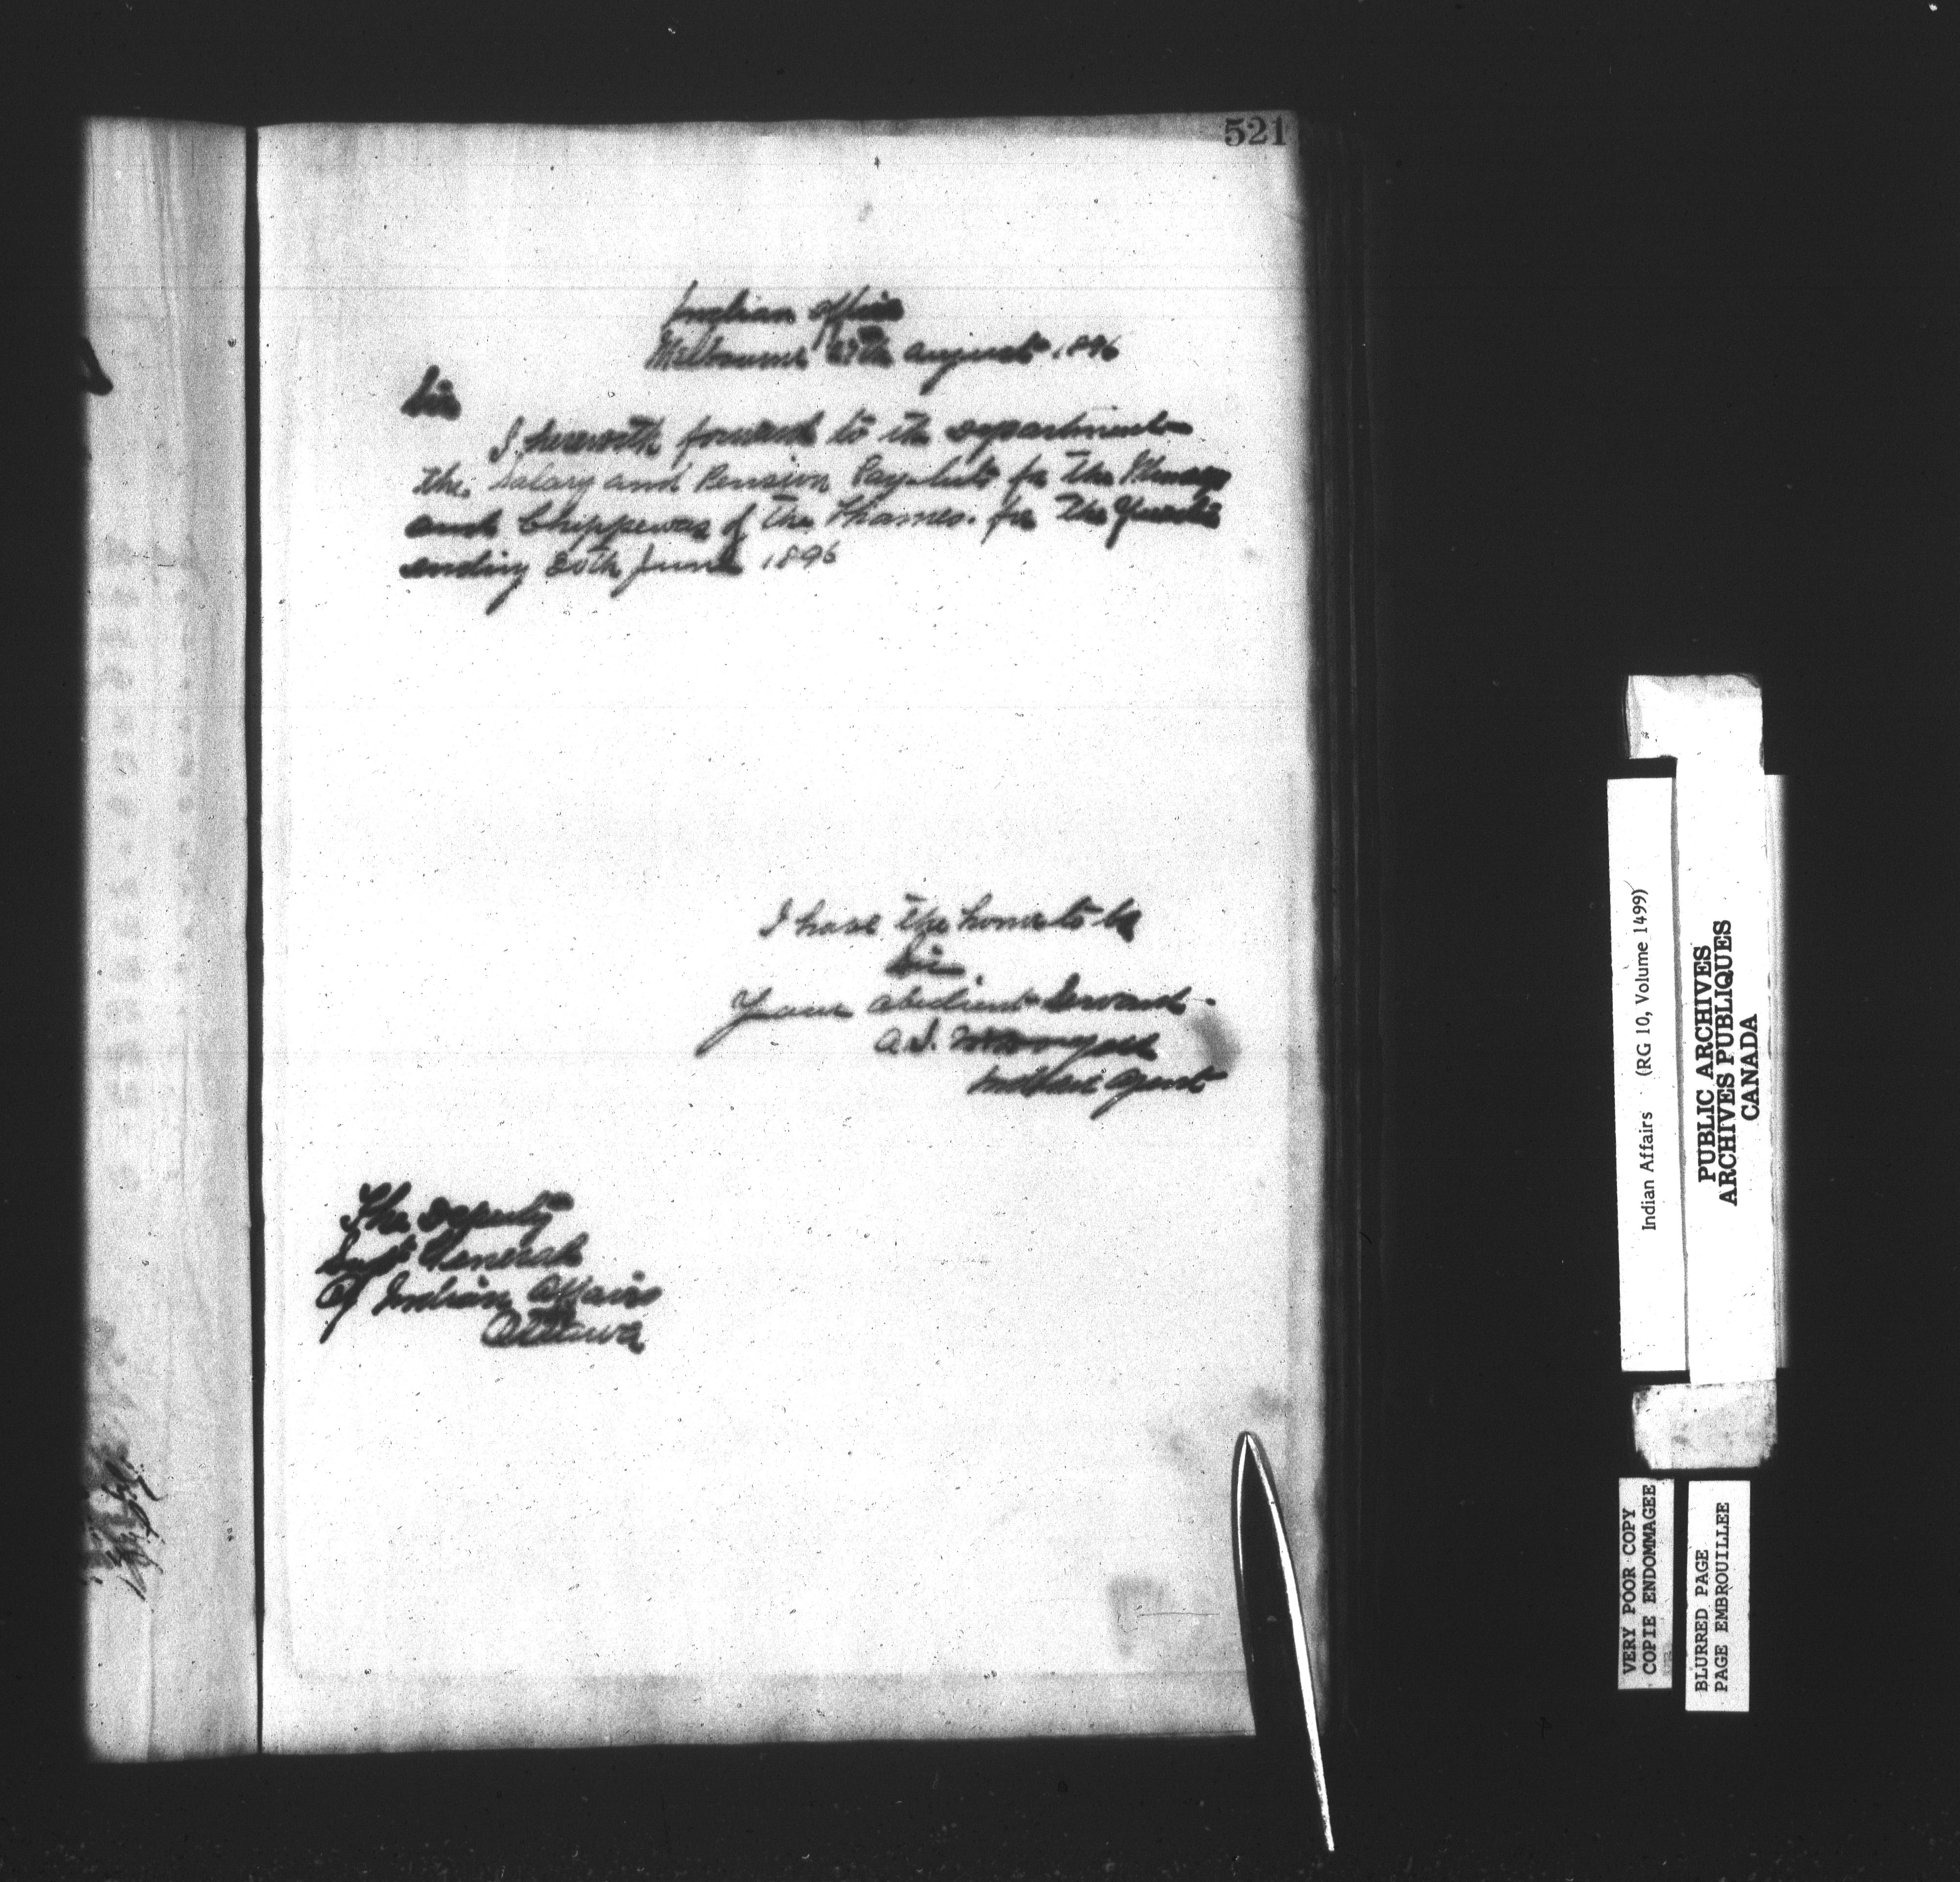 521
Indian Office
Melbourne 27th August 1896
Sir
I herewith forward to the Department
the Salary and Pension Paylists for the
and Chippewas of the Thames. for The Quarter
ending 30th June 1896
I have the honor to be
Sir
Your obedient Servant.
A.S. McDougall
Indian Agent
The Deputy
Supt General
Of Indian Affairs
Ottawa
Indian Affairs (RG 10, Volume 1499)
PUBLIC ARCHIVES
ARCHIVES PUBLIQUES
CANADA
VERY POOR COPY
COPIE ENDOMMAGEE
BLURRED PAGE
PAGE EMBROUILLEE